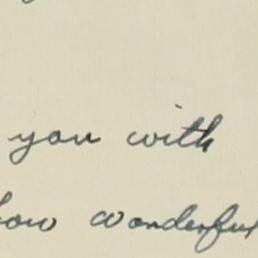 you with
how wonderful